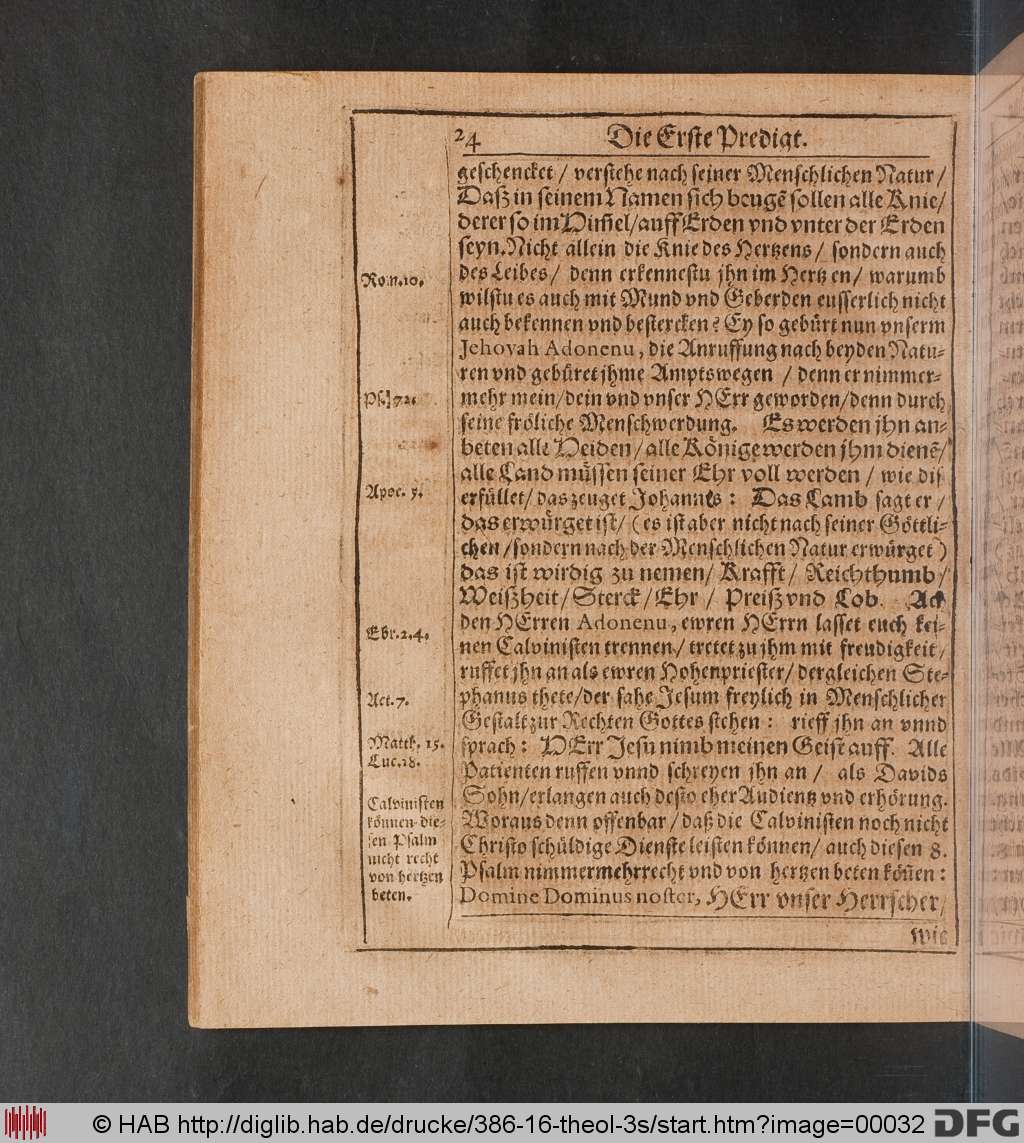 24 Die Erste Predigt.
geschencket / verstehe nach seiner Menschlichen Natur /
Daß in seinem Namen sich beugẽ sollen alle Knie /
derer so im Him̃el / auff Erden vnd vnter der Erden
seyn. Nicht allein die Knie des Hertzens / sondern auch
des Leibes / denn erkennestu jhn im Hertzen / warumb
wilstu es auch mit Mund vnd Geberden eusserlich nicht
auch bekennen vnd bestercken? Ey so gebürt nun vnserm
Jehovah Adonenu, die Anruffung nach beyden Natu-
ren vnd gebüret jhme Amptswegen / denn er nimmer-
mehr mein / dein vnd vnser HErr geworden / denn durch
seine fröliche Menschwerdung. Es werden jhn an-
beten alle Heiden / alle Könige werden jhm dienẽ /
alle Land müssen seiner Ehr voll werden / wie dis
erfüllet / das zeuget Johannes: Das Lamb sagt er /
das erwürget ist / (es ist aber nicht nach seiner Göttli-
chen / sondern nach der Menschlichen Natur erwürget)
das ist wirdig zu nemen / Krafft / Reichthumb /
Weißheit / Sterck / Ehr / Preiß vnd Lob. Ach
den HErren Adonenu, ewren HErrn lasset euch kei-
nen Calvinisten trennen / tretet zu jhm mit freudigkeit /
ruffet jhn an als ewren Hohenpriester / dergleichen Ste-
phanus thete / der sahe Jesum freylich in Menschlicher
Gestalt zur Rechten Gottes stehen: rieff jhn an vnnd
sprach: HErr Jesu nimb meinen Geist auff. Alle
Patienten ruffen vnnd schreyen jhn an / als Davids
Sohn / erlangen auch desto eher Audientz vnd erhörung.
Woraus denn offenbar / daß die Calvinisten noch nicht
Christo schüldige Dienste leisten können / auch diesen 8.
Psalm nimmermehr recht vnd von hertzen beten kön̄en:
Domine Dominus noster, HErr vnser Herrscher /
wie
Rom. 10.
Psal. 72.
Apoc. 5.
Ebr. 2. 4.
Act. 7.
Matth. 15.
Luc. 18.
Calvinisten
können die-
sen Psalm
nicht recht
von hertzen
beten.
© HAB http://diglib.hab.de/drucke/386-16-theol-3s/start.htm?image=00032 DFG